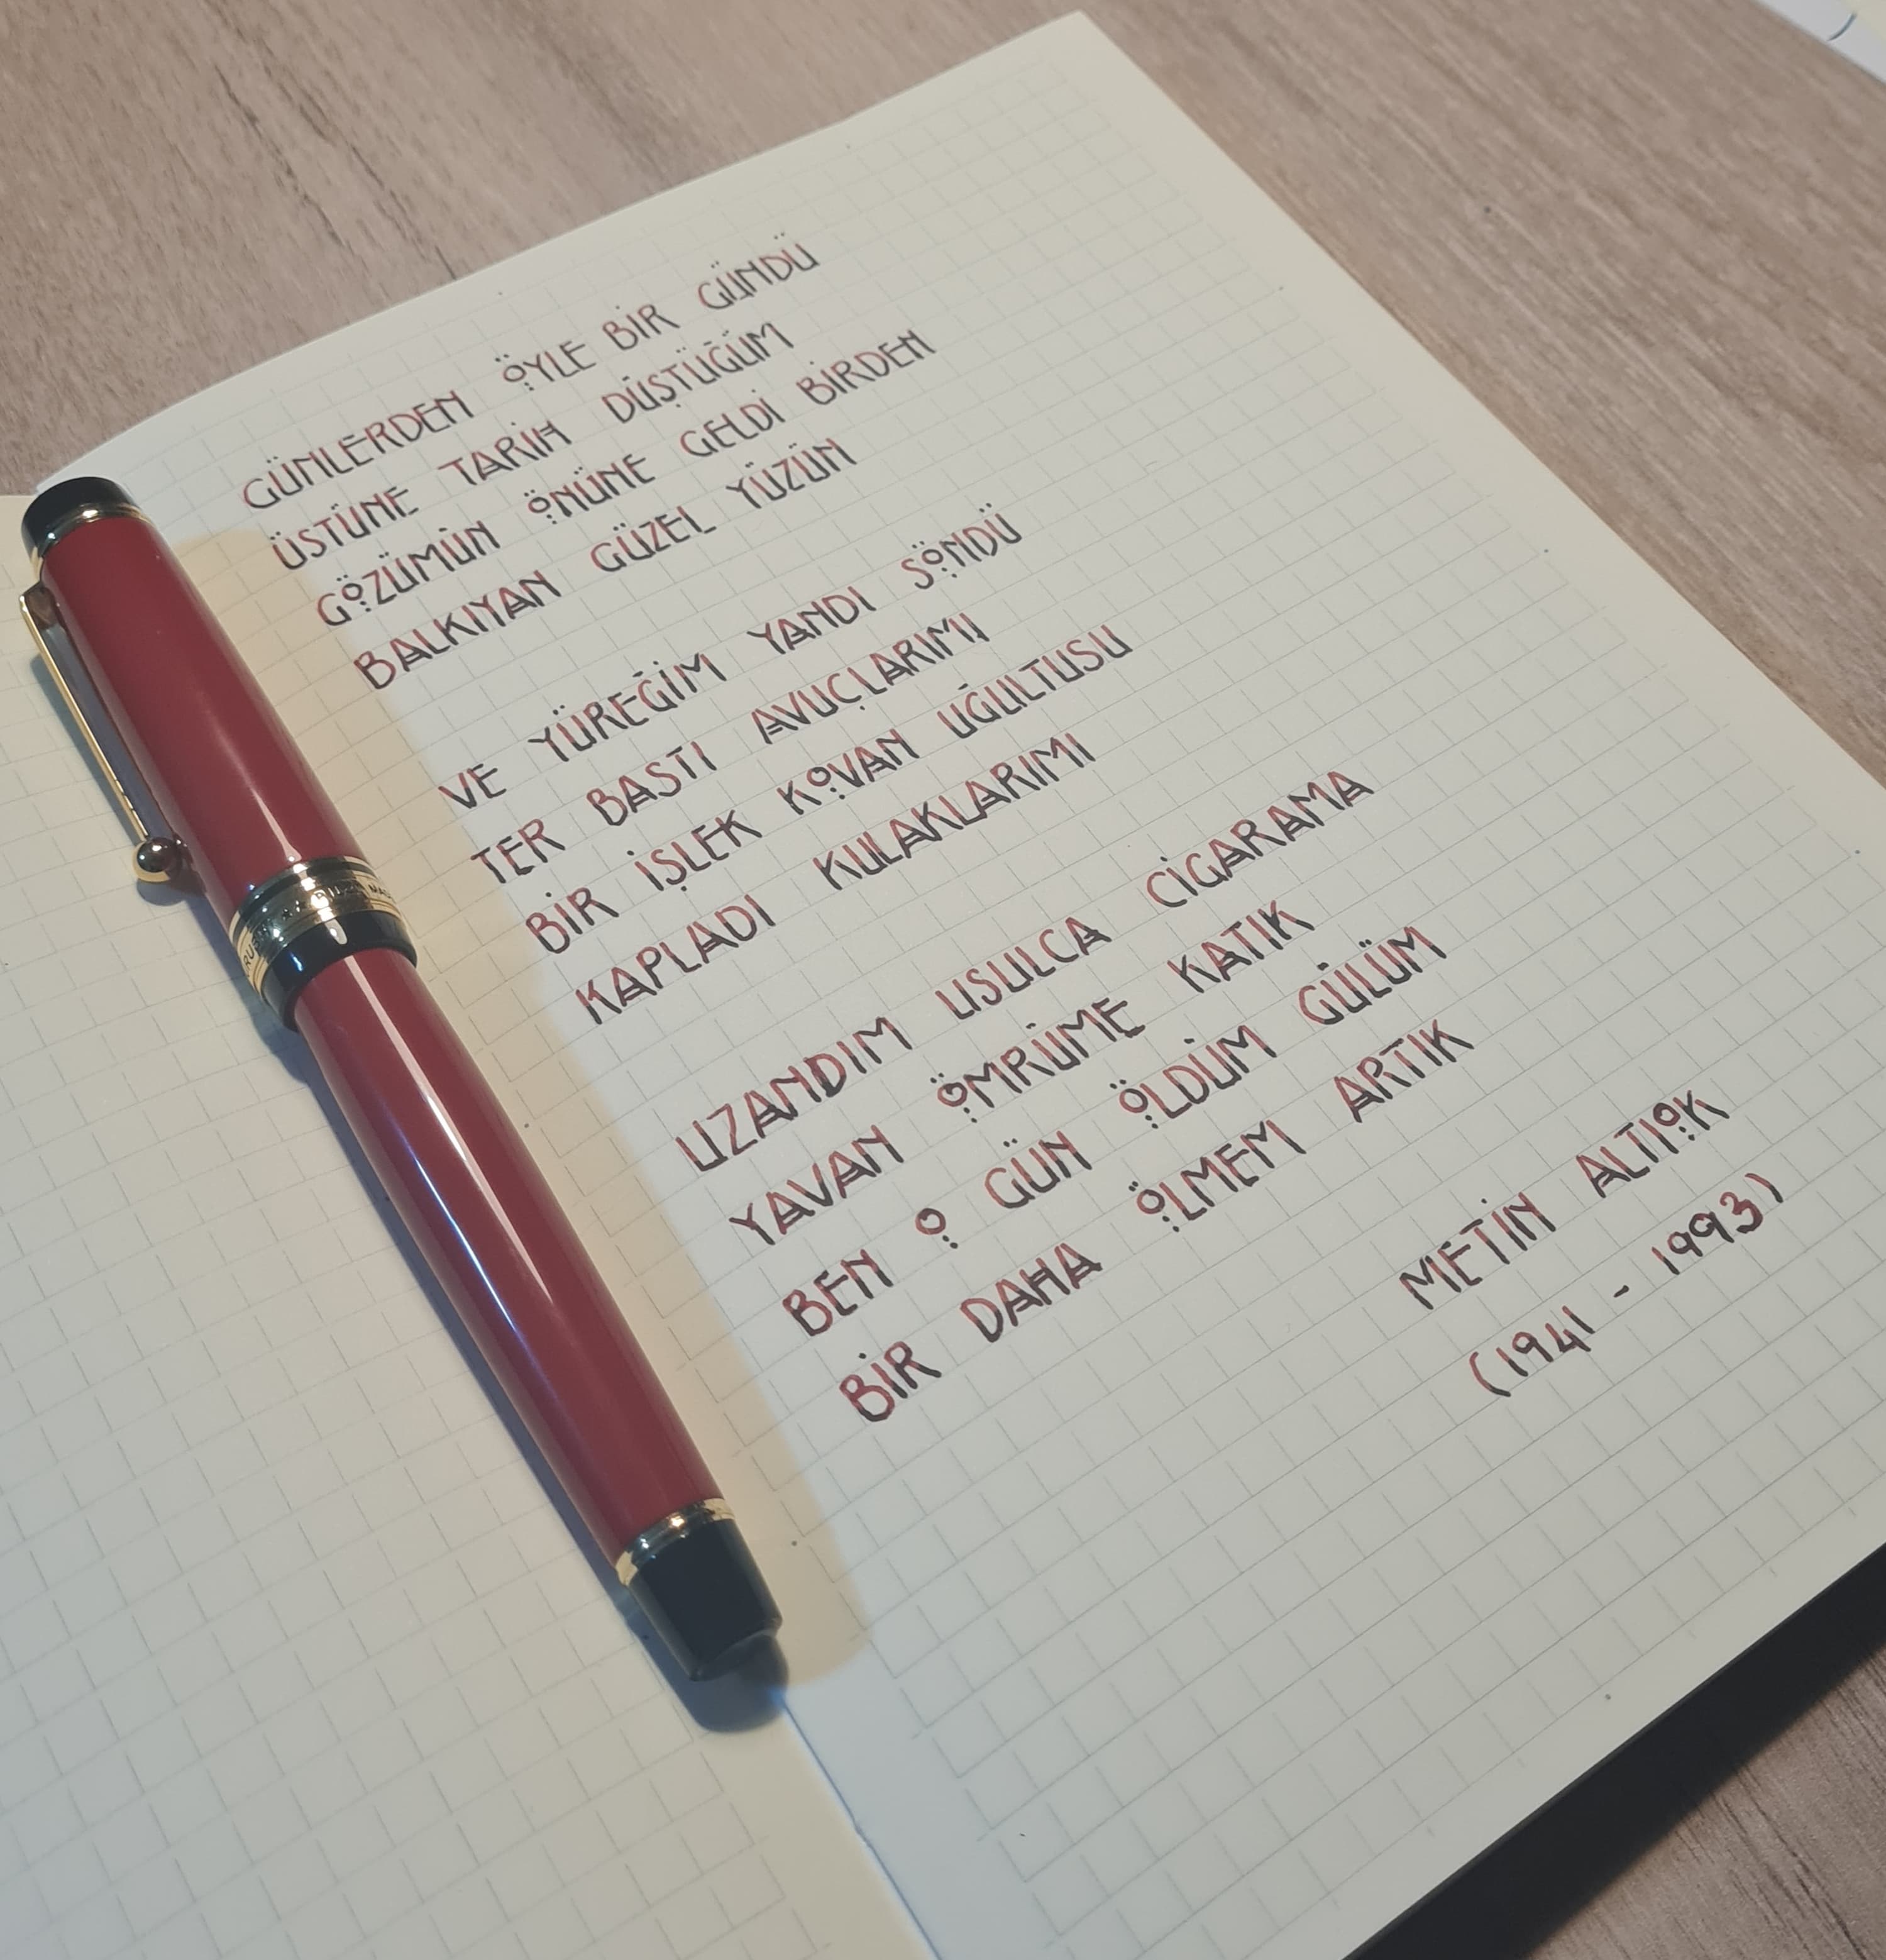 GÜNLERDEN ÖYLE BİR GÜNDÜ
ÜSTÜNE TARİH DÜŞTÜĞÜM
GÖZÜMÜN ÖNÜNE GELDİ BİRDEN
BALKIYAN GÜZEL YÜZÜN
VE YÜREĞİM YANDI SÖNDÜ
TER BASTI AVUÇLARIMI
BİR İŞLEK KOVAN UĞULTUSU
KAPLADI KULAKLARIMI
UZANDIM USULCA CİGARAMA
YAVAN ÖMRÜME KATIK
BEN O GÜN ÖLDÜM GÜLÜM
BİR DAHA ÖLMEM ARTIK
METİN ALTIOK
(1941 - 1993)